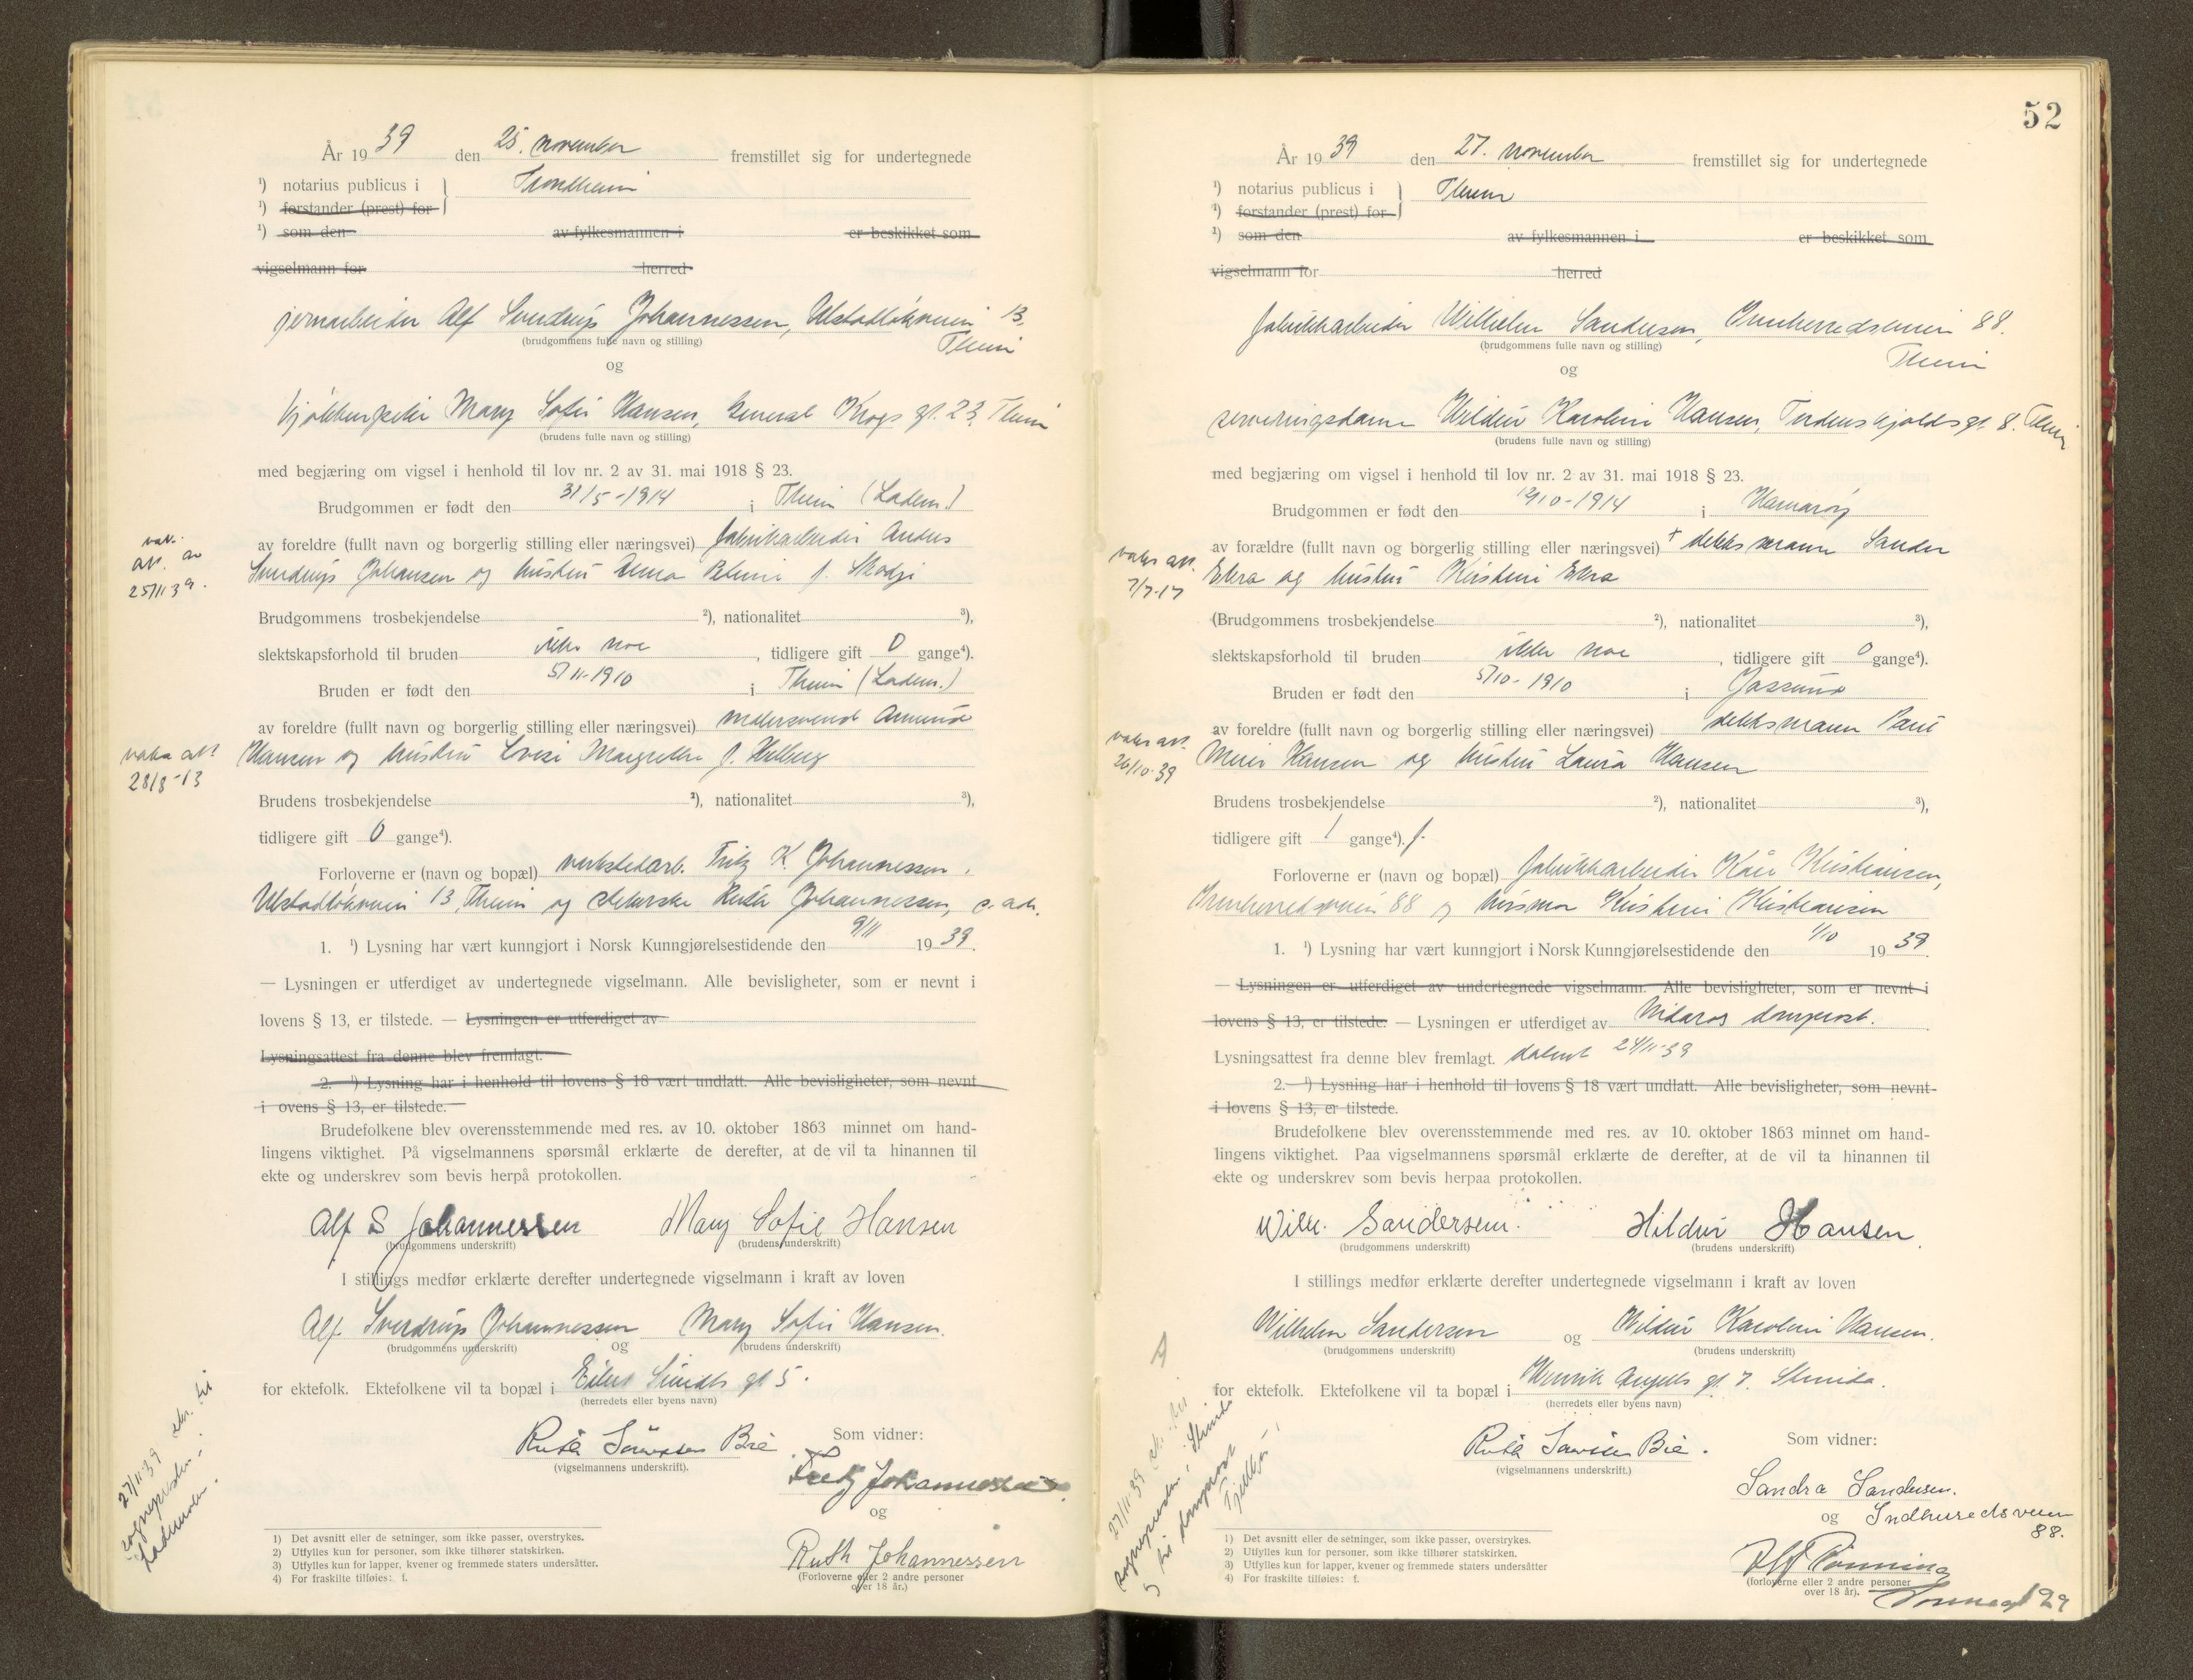 År 19 39 den 25. november fremstillet sig for undertegnede
¹) notarius publicus i Trondheim
¹) forstander (prest) for
¹) som den av fylkesmannen i er beskikket som
vigselmann for herred
jernarbeider Alf Sverdrup Johannessen, Ulstadløkveien 13,
Theim
(brudgommens fulle navn og stilling)
og
kjøkkenpike Mary Sofie Hansen, General Krogs gt. 23, Theim
(brudens fulle navn og stilling)
med begjæring om vigsel i henhold til lov nr. 2 av 31. mai 1918 § 23.
Brudgommen er født den 31/5-1914 i Theim (Ladem.)
av foreldre (fullt navn og borgerlig stilling eller næringsvei) fabrikarbeider Anders
Sverdrup Johansen og hustru Anna Petrine f. Skodje
vak.
att. av
25/11 39.
Brudgommens trosbekjendelse ²), nationalitet ³),
slektskapsforhold til bruden ikke noe, tidligere gift 0 gange⁴).
Bruden er født den 5/11-1910 i Theim (Ladem.)
av foreldre (fullt navn og borgerlig stilling eller næringsvei) malersvend Amund
Hansen og hustru Lovise Margrethe f. Helberg
vaks att
28/8-13
Brudens trosbekjendelse ²), nationalitet ³),
tidligere gift 0 gange⁴).
Forloverne er (navn og bopæl) verkstedarb. Fritz K. Johannessen,
Ulstadløkveien 13, Theim og Ruth Johannessen, s. adr.
1. ¹) Lysning har vært kunngjort i Norsk Kunngjørelsestidende den 9/11 19 39.
— Lysningen er utferdiget av undertegnede vigselmann. Alle bevisligheter, som er nevnt i
lovens § 13, er tilstede. — Lysningen er utferdiget av
Lysningsattest fra denne blev fremlagt.
2. ¹) Lysning har i henhold til lovens § 18 vært undlatt. Alle bevisligheter, som nevnt
i ovens § 13, er tilstede.
Brudefolkene blev overensstemmende med res. av 10. oktober 1863 minnet om hand-
lingens viktighet. På vigselmannens spørsmål erklærte de derefter, at de vil ta hinannen til
ekte og underskrev som bevis herpå protokollen.
Alf S Johannessen Mary Sofie Hansen
(brudgommens underskrift) (brudens underskrift)
I stillings medfør erklærte derefter undertegnede vigselmann i kraft av loven
Alf Sverdrup Johannessen Mary Sofie Hansen.
(brudgommens underskrift) og (brudens underskrift)
for ektefolk. Ektefolkene vil ta bopæl i Eilert Sundts gt 5.
(herredets eller byens navn)
Ruth Sørensen Bie Som vidner:
(vigselmannens underskrift).
Fritz Johannessen
og
Ruth Johannessen
(Forloverne eller 2 andre personer
over 18 år.)
27/11-39 skr. til
sognepresten i
Lademoen.
1) Det avsnitt eller de setninger, som ikke passer, overstrykes.
2) Utfylles kun for personer, som ikke tilhører statskirken.
3) Utfylles kun for lapper, kvener og fremmede staters undersåtter.
4) For fraskilte tilføies: f.
52
År 19 39 den 27. november fremstillet sig for undertegnede
¹) notarius publicus i Theim
¹) forstander (prest) for
¹) som den av fylkesmannen i er beskikket som
vigselmann for herred
fabrikkarbeider Wilhelm Sandersen, Innherredsveien 88.
Theim
(brudgommens fulle navn og stilling)
og
serveringsdame Hildur Karoline Hansen, Tordenskjolds gt. 8. Theim
(brudens fulle navn og stilling)
med begjæring om vigsel i henhold til lov nr. 2 av 31. mai 1918 § 23.
Brudgommen er født den 10-1914 i Hamarøy
av forældre (fullt navn og borgerlig stilling eller næringsvei) + dekksmann Sander
Ekra og hustru Kristine Ekra
vaks att.
7/7-17
(Brudgommens trosbekjendelse ²), nationalitet ³),
slektskapsforhold til bruden ikke noe, tidligere gift 0 gange⁴).
Bruden er født den 5/10-1910 i Jøssund
av foreldre (fullt navn og borgerlig stilling eller næringsvei) dekksmann Paul
Meier Hansen og hustru Laura Hansen
vaks att.
26/10-39
Brudens trosbekjendelse ²), nationalitet ³),
tidligere gift 1 gange⁴). f.
Forloverne er (navn og bopæl) fabrikkarbeider Kåre Kristiansen,
Innherredsveien 88 og husmor Kristine Kristiansen
1. ¹) Lysning har vært kunngjort i Norsk Kunngjørelsestidende den 1/10 19 39.
— Lysningen er utferdiget av undertegnede vigselmann. Alle bevisligheter, som er nevnt i
lovens § 13, er tilstede. — Lysningen er utferdiget av Nidaros domprost.
Lysningsattest fra denne blev fremlagt. datert 24/11-39
2. ¹) Lysning har i henhold til lovens § 18 vært undlatt. Alle bevisligheter, som nevnt
i lovens § 13, er tilstede.
Brudefolkene blev overensstemmende med res. av 10. oktober 1863 minnet om hand-
lingens viktighet. Paa vigselmannens spørsmål erklærte de derefter, at de vil ta hinannen til
ekte og underskrev som bevis herpaa protokollen.
Wilh. Sandersen. Hildur Hansen.
(brudgommens underskrift) (brudens underskrift)
I stillings medfør erklærte derefter undertegnede vigselmann i kraft av loven
Wilhelm Sandersen og Hildur Karoline Hansen.
(brudgommens underskrift) (brudens underskrift)
for ektefolk. Ektefolkene vil ta bopæl i Henrik Angells gt. 7. Strinda.
(herredets eller byens navn)
Ruth Sørensen Bie. Som vidner:
(vigselmannens underskrift).
Sandra Sandersen.
og Indheredsveien
88.
Alf Rønning
(forloverne eller 2 andre personer
over 18 år).
27/11-39 skr. til
sognepresten i Strinda
og til domprost
Fjellbu
1) Det avsnitt eller de setninger, som ikke passer, overstrykes.
2) Utfylles kun for personer, som ikke tilhører statskirken.
3) Utfylles kun for lapper, kvener og fremmede staters undersåtter
4) For fraskilte tilføies: f.